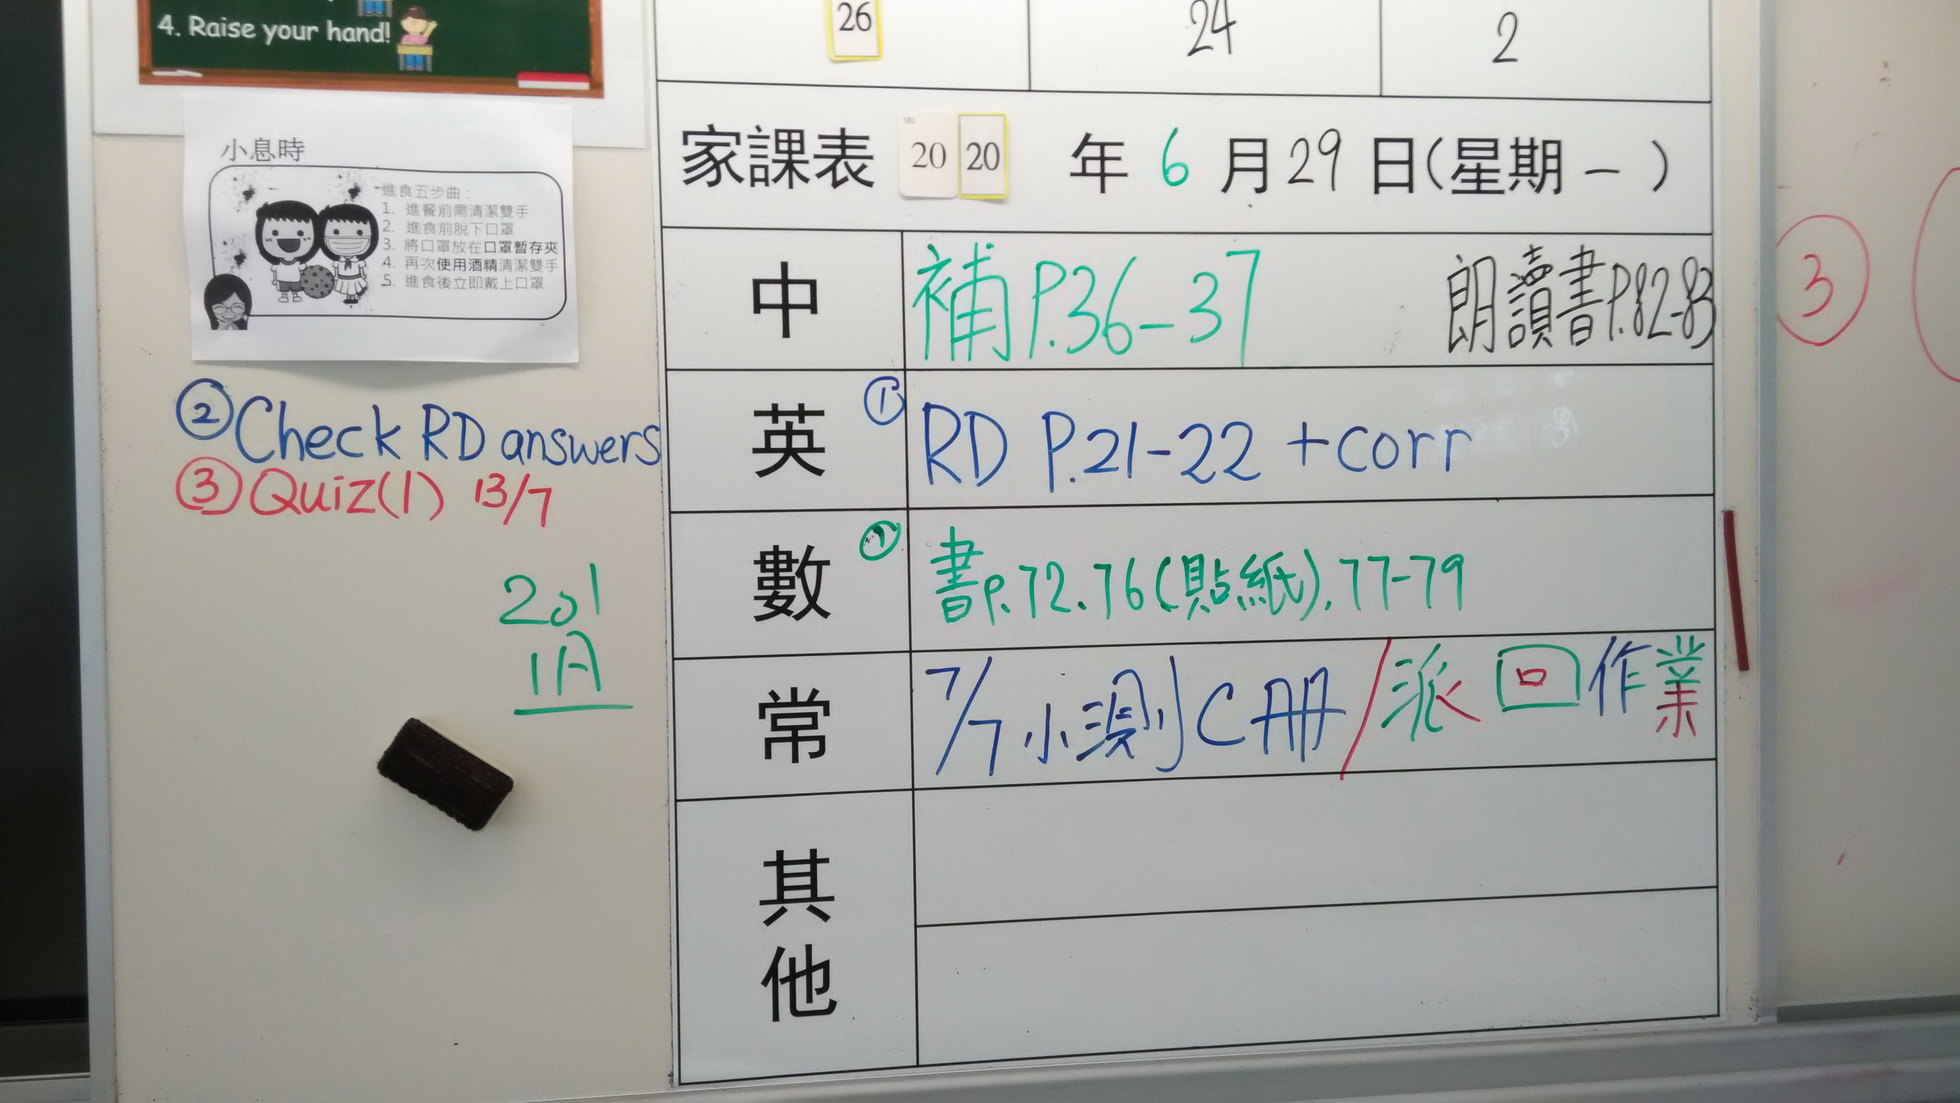 4. Raise your hand!
26 24 2
小息時
進食五步曲：
1. 進餐前需清潔雙手
2. 進食前脫下口罩
3. 將口罩放在口罩暫存夾
4. 再次使用酒精清潔雙手
5. 進食後立即戴上口罩
家課表 20 20 年 6 月 29 日(星期一)
中 補 P.36-37 朗讀書P.82-83
③
英 ① RD P.21-22 +corr
② Check RD answers
③ Quiz(1) 13/7
數 ① 書P.72.76(貼紙).77-79
201
1A
常 7/7 小測 C冊/派回作業
其他